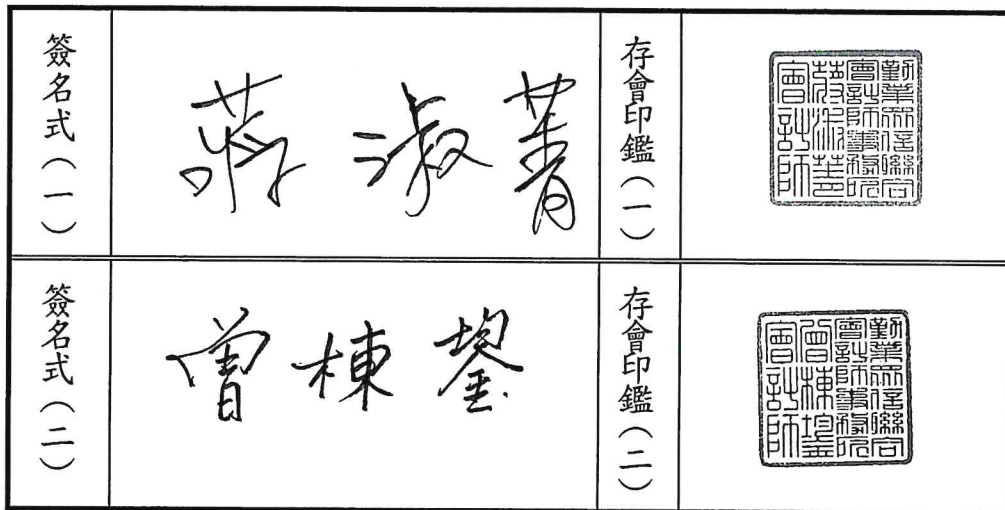 簽名式（一）
蔣淑菁
存會印鑑（一）
勤業眾信聯合
會計師事務所
蔣淑菁
會計師
簽名式（二）
曾棟鋆
存會印鑑（二）
勤業眾信聯合
會計師事務所
曾棟鋆
會計師